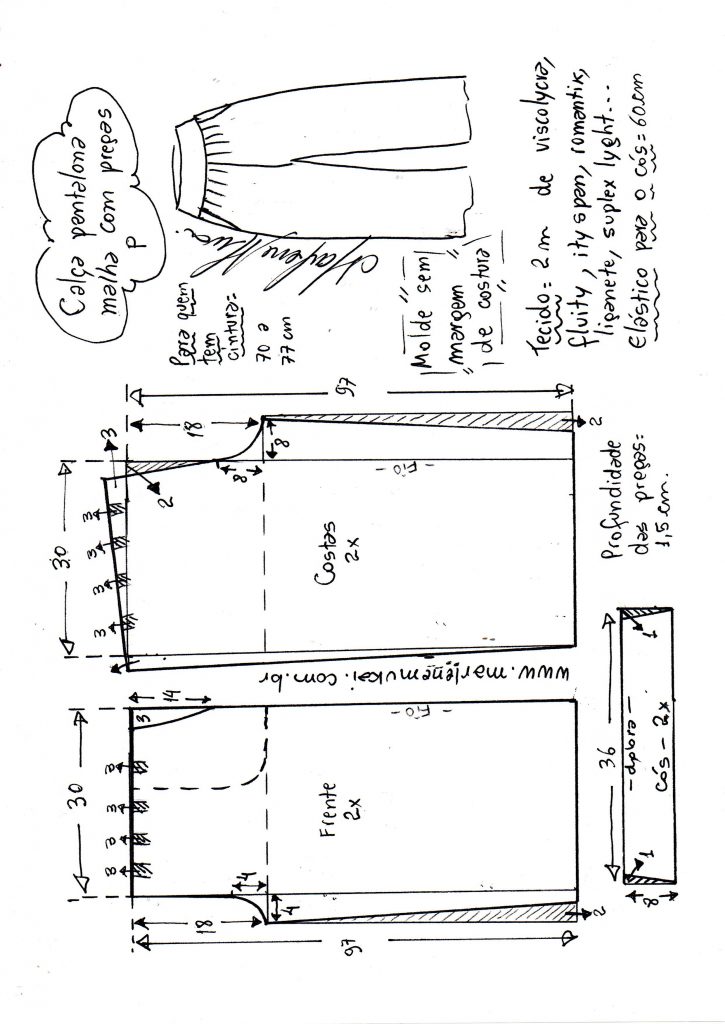 Calça pantalona
malha com pregas
P
Para quem
tem
cintura=
70 a
77 cm
Marlene Mukai
Molde sem
margem
de costura
Tecido = 2 m de viscolycra,
fluity, ity span, romantik,
liganete, suplex lyght...
Elástico para o cós = 60cm
97
18
3
30
2
8
8
3
3
3
3
Fio
Costas
2x
2
Profundidade
das pregas=
1,5 cm.
www.marlenemukai.com.br
30
14
3
3
3
3
3
Fio
Frente
2x
18
4
4
97
2
36
1
- dobra -
cós - 2x
1
8